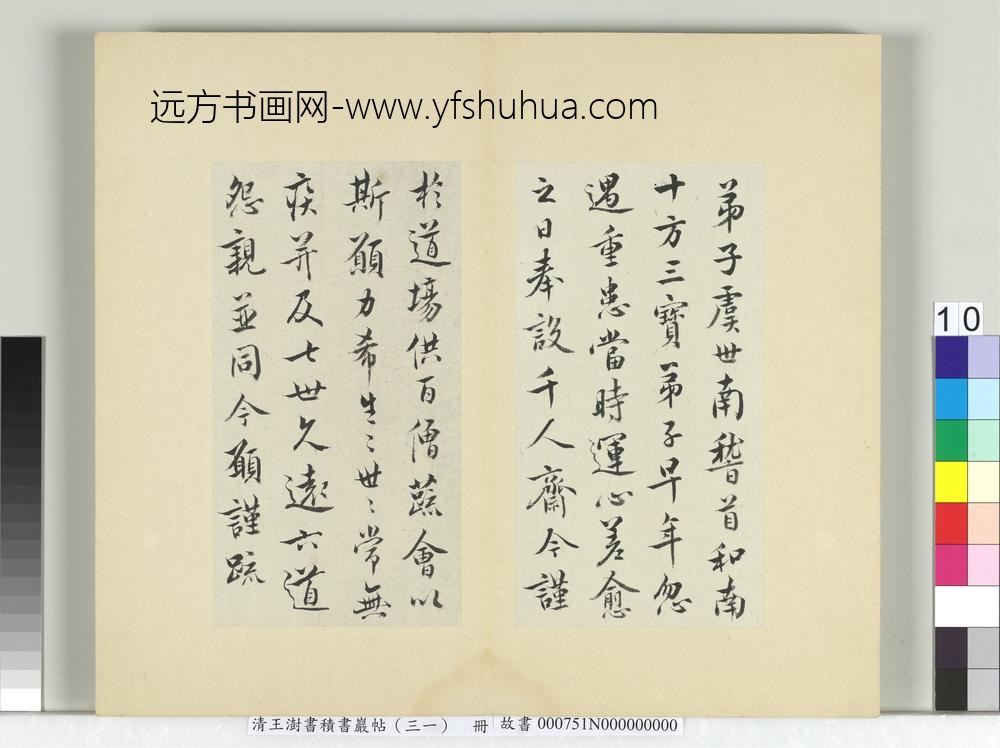 远方书画网-www.yfshuhua.com
弟子虞世南稽首和南
十方三寶弟子早年忽
遇重患當時運心差愈
之日奉設千人齋今謹
於道場供百僧蔬會以
斯願力希生〻世〻常無
疾并及七世久遠六道
怨親並同今願謹疏
10
清王澍書積書巖帖（三一） 冊 故書 000751N000000000